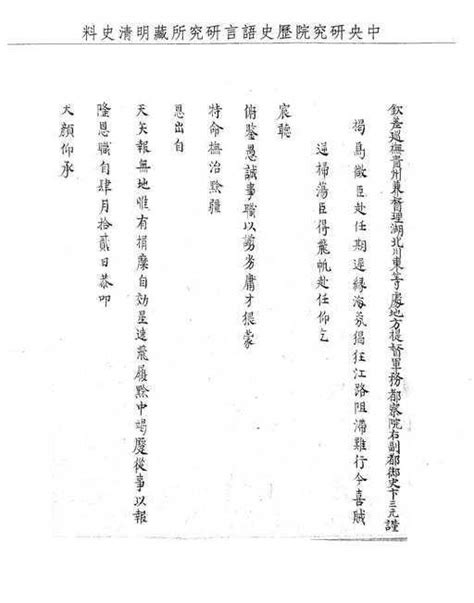 中央研究院歷史語言研究所藏明清史料
欽差巡撫貴州兼督理湖北川東等處地方提督軍務都察院右副都御史卞三元謹
揭為微臣赴任期遲緣海氛猖狂江路阻滯難行今喜賊
逆掃蕩臣得飛帆赴任仰乞
宸聽
俯鑒愚誠事職以謭劣庸才猥蒙
特命撫治黔疆
恩出自
天矢報無地惟有捐糜自効星速飛履黔中竭從事以報
隆恩職自肆月拾貳日恭叩
天顏仰承